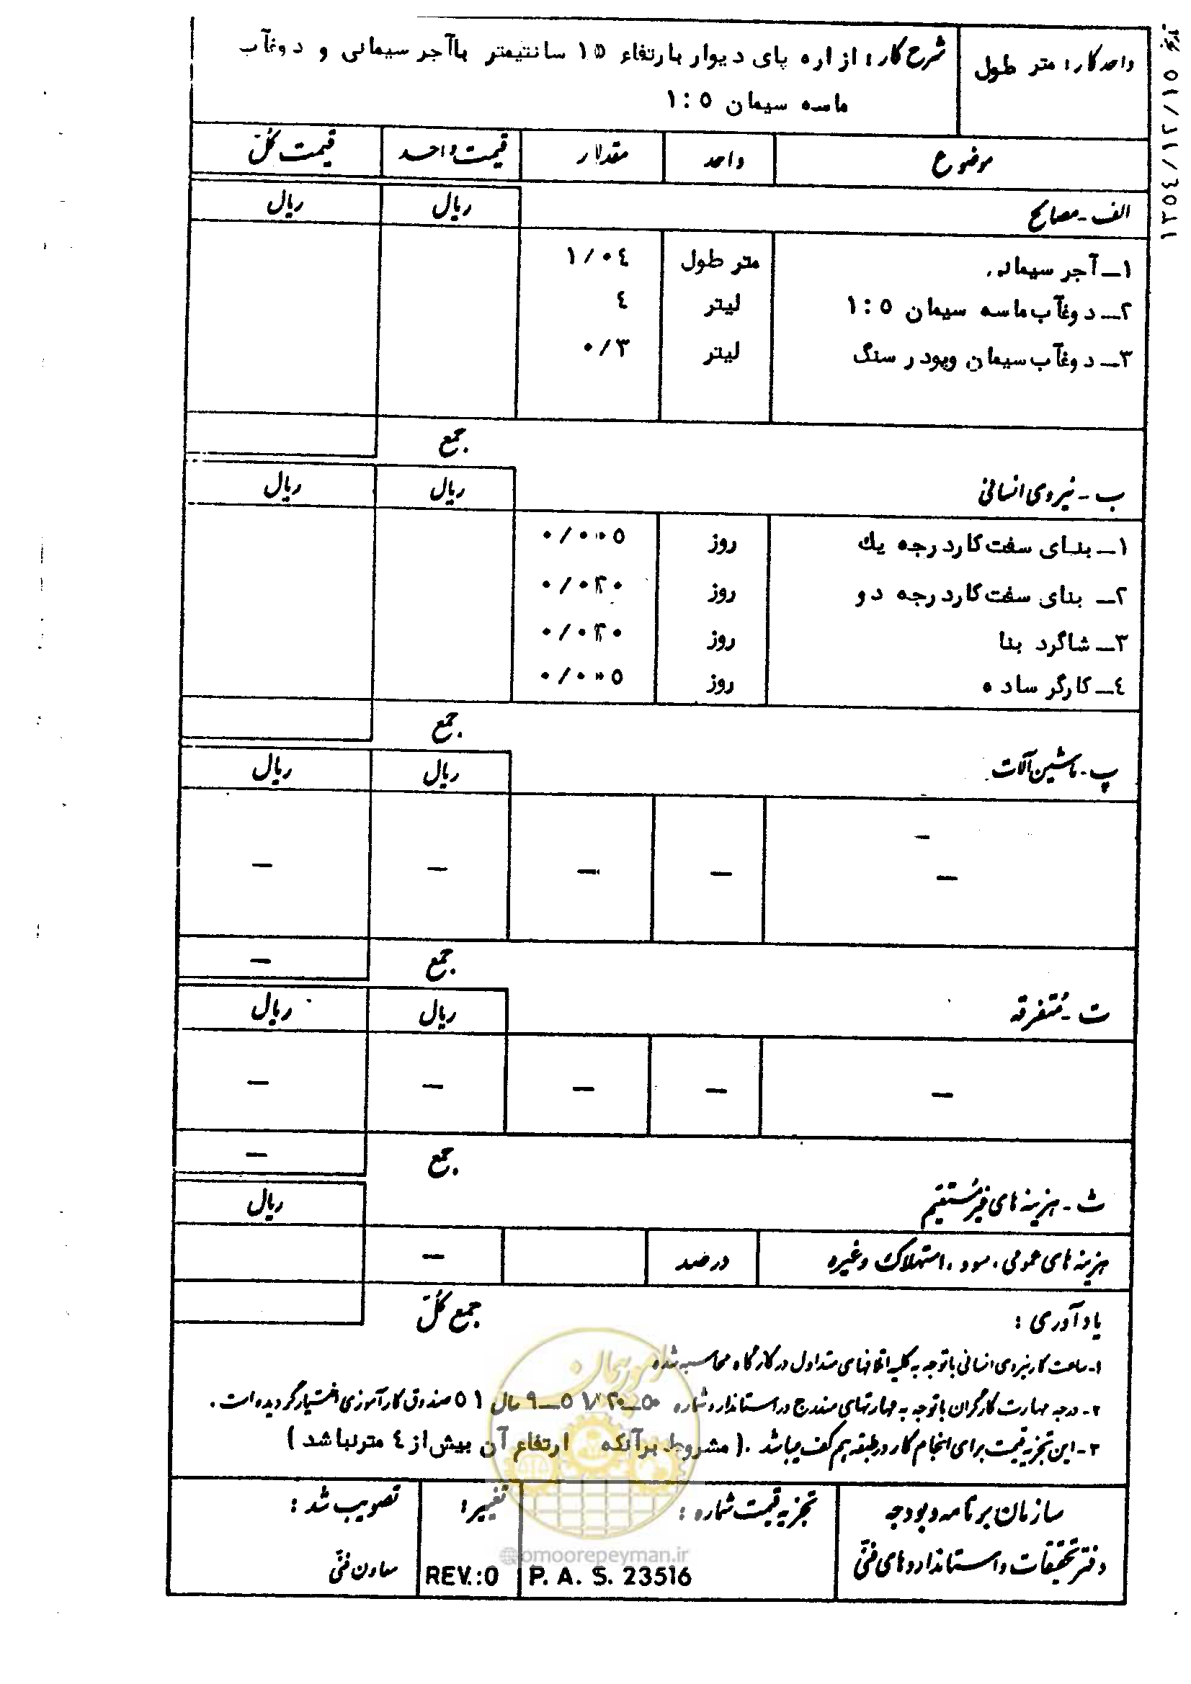 واحدکار: متر طول
شرح کار: ازاره پای دیوار بارتفاع ۱۵ سانتیمتر باآجر سیمانی و دوغآب
ماسه سیمان ۱:۵
موضوع واحد مقدار قیمت واحد قیمت کلّ
الف - مصالح ریال ریال
۱ــ آجر سیمانی متر طول ۱/۰٤
۲ــ دوغآب ماسه سیمان ۱:۵ لیتر ٤
۳ــ دوغآب سیمان وپودر سنگ لیتر ۰/۳
جمع
ب - نیروی انسانی ریال ریال
۱ــ بنای سفت کار درجه یك روز
۲ــ بنای سفت کار درجه دو روز
۳ــ شاگرد بنا روز
٤ــ کارگر ساده روز
جمع
پ - ماشین آلات ریال ریال
—
— — — — —
جمع —
ت - متفرقه ریال ریال
— — — — —
جمع —
ث - هزینه های غیرمستقیم ریال
هزینه های عمومی، سود، استهلاک وغیره درصد —
یادآوری: جمع کلّ
۱- ساعت کار نیروی انسانی با توجه به کلیه اتلافهای متداول در کارگاه محاسبه شده
۲- درجه مهارت کارگران با توجه به مهارتهای مندرج در استاندارد شماره سال ۵۱ صندوق کارآموزی اختیار گردیده است.
۳- این تجزیه قیمت برای انجام کار در طبقه هم کف میباشد. (مشروط برآنکه ارتفاع آن بیش از ٤ مترنباشد)
سازمان برنامه و بودجه
دفتر تحقیقات و استانداردهای فنّی
تجزیه قیمت شماره:
P. A. S. 23516
تغییر:
REV.:0
تصویب شد:
معاون فنّی
امور پیمان
@omoorepeyman.ir